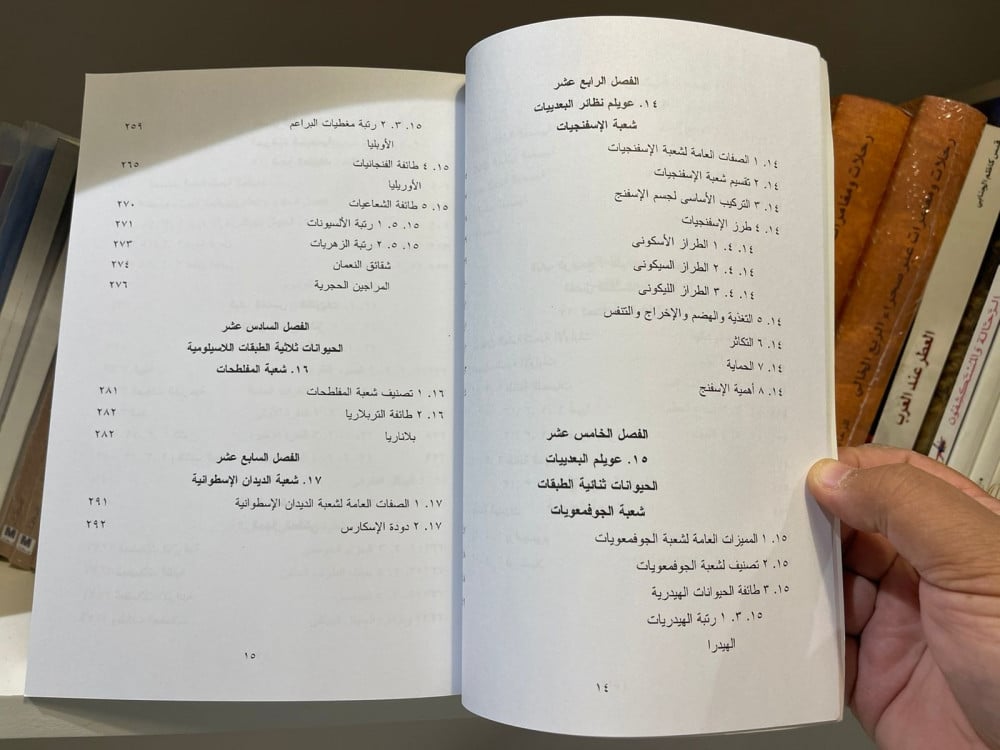 الفصل الرابع عشر
١٤. عويلم نظائر البعدييات
شعبة الإسفنجيات
١٤. ١ الصفات العامة لشعبة الإسفنجيات
١٤. ٢ تقسيم شعبة الإسفنجيات
١٤. ٣ التركيب الأساسى لجسم الإسفنج
١٤. ٤ طرز الإسفنجيات
١٤. ٤. ١ الطراز الأسكونى
١٤. ٤. ٢ الطراز السيكونى
١٤. ٤. ٣ الطراز الليكونى
١٤. ٥ التغذية والهضم والإخراج والتنفس
١٤. ٦ التكاثر
١٤. ٧ الحماية
١٤. ٨ أهمية الإسفنج
الفصل الخامس عشر
١٥. عويلم البعدييات
الحيوانات ثنائية الطبقات
شعبة الجوفمعويات
١٥. ١ المميزات العامة لشعبة الجوفمعويات
١٥. ٢ تصنيف لشعبة الجوفمعويات
١٥. ٣ طائفة الحيوانات الهيدرية
١٥. ٣. ١ رتبة الهيدريات
الهيدرا
١٤
١٥. ٣. ٢ رتبة مغطيات البراعم ٢٥٩
الأوبليا
١٥. ٤ طائفة الفنجانيات ٢٦٥
الأوريليا
١٥. ٥ طائفة الشعاعيات ٢٧٠
١٥. ٥. ١ رتبة الألسيونات ٢٧١
١٥. ٥. ٢ رتبة الزهريات ٢٧٣
شقائق النعمان ٢٧٤
المراجين الحجرية ٢٧٦
الفصل السادس عشر
الحيوانات ثلاثية الطبقات اللاسيلومية
١٦. شعبة المفلطحات
١٦. ١ تصنيف شعبة المفلطحات ٢٨١
١٦. ٢ طائفة التربلاريا ٢٨٢
بلاناريا ٢٨٢
الفصل السابع عشر
١٧. شعبة الديدان الإسطوانية
١٧. ١ الصفات العامة لشعبة الديدان الإسطوانية ٢٩١
١٧. ٢ دودة الإسكارس ٢٩٢
١٥
رحلات ومغامرات عبر صحراء الربع الخالي
العطر عند العرب
M M